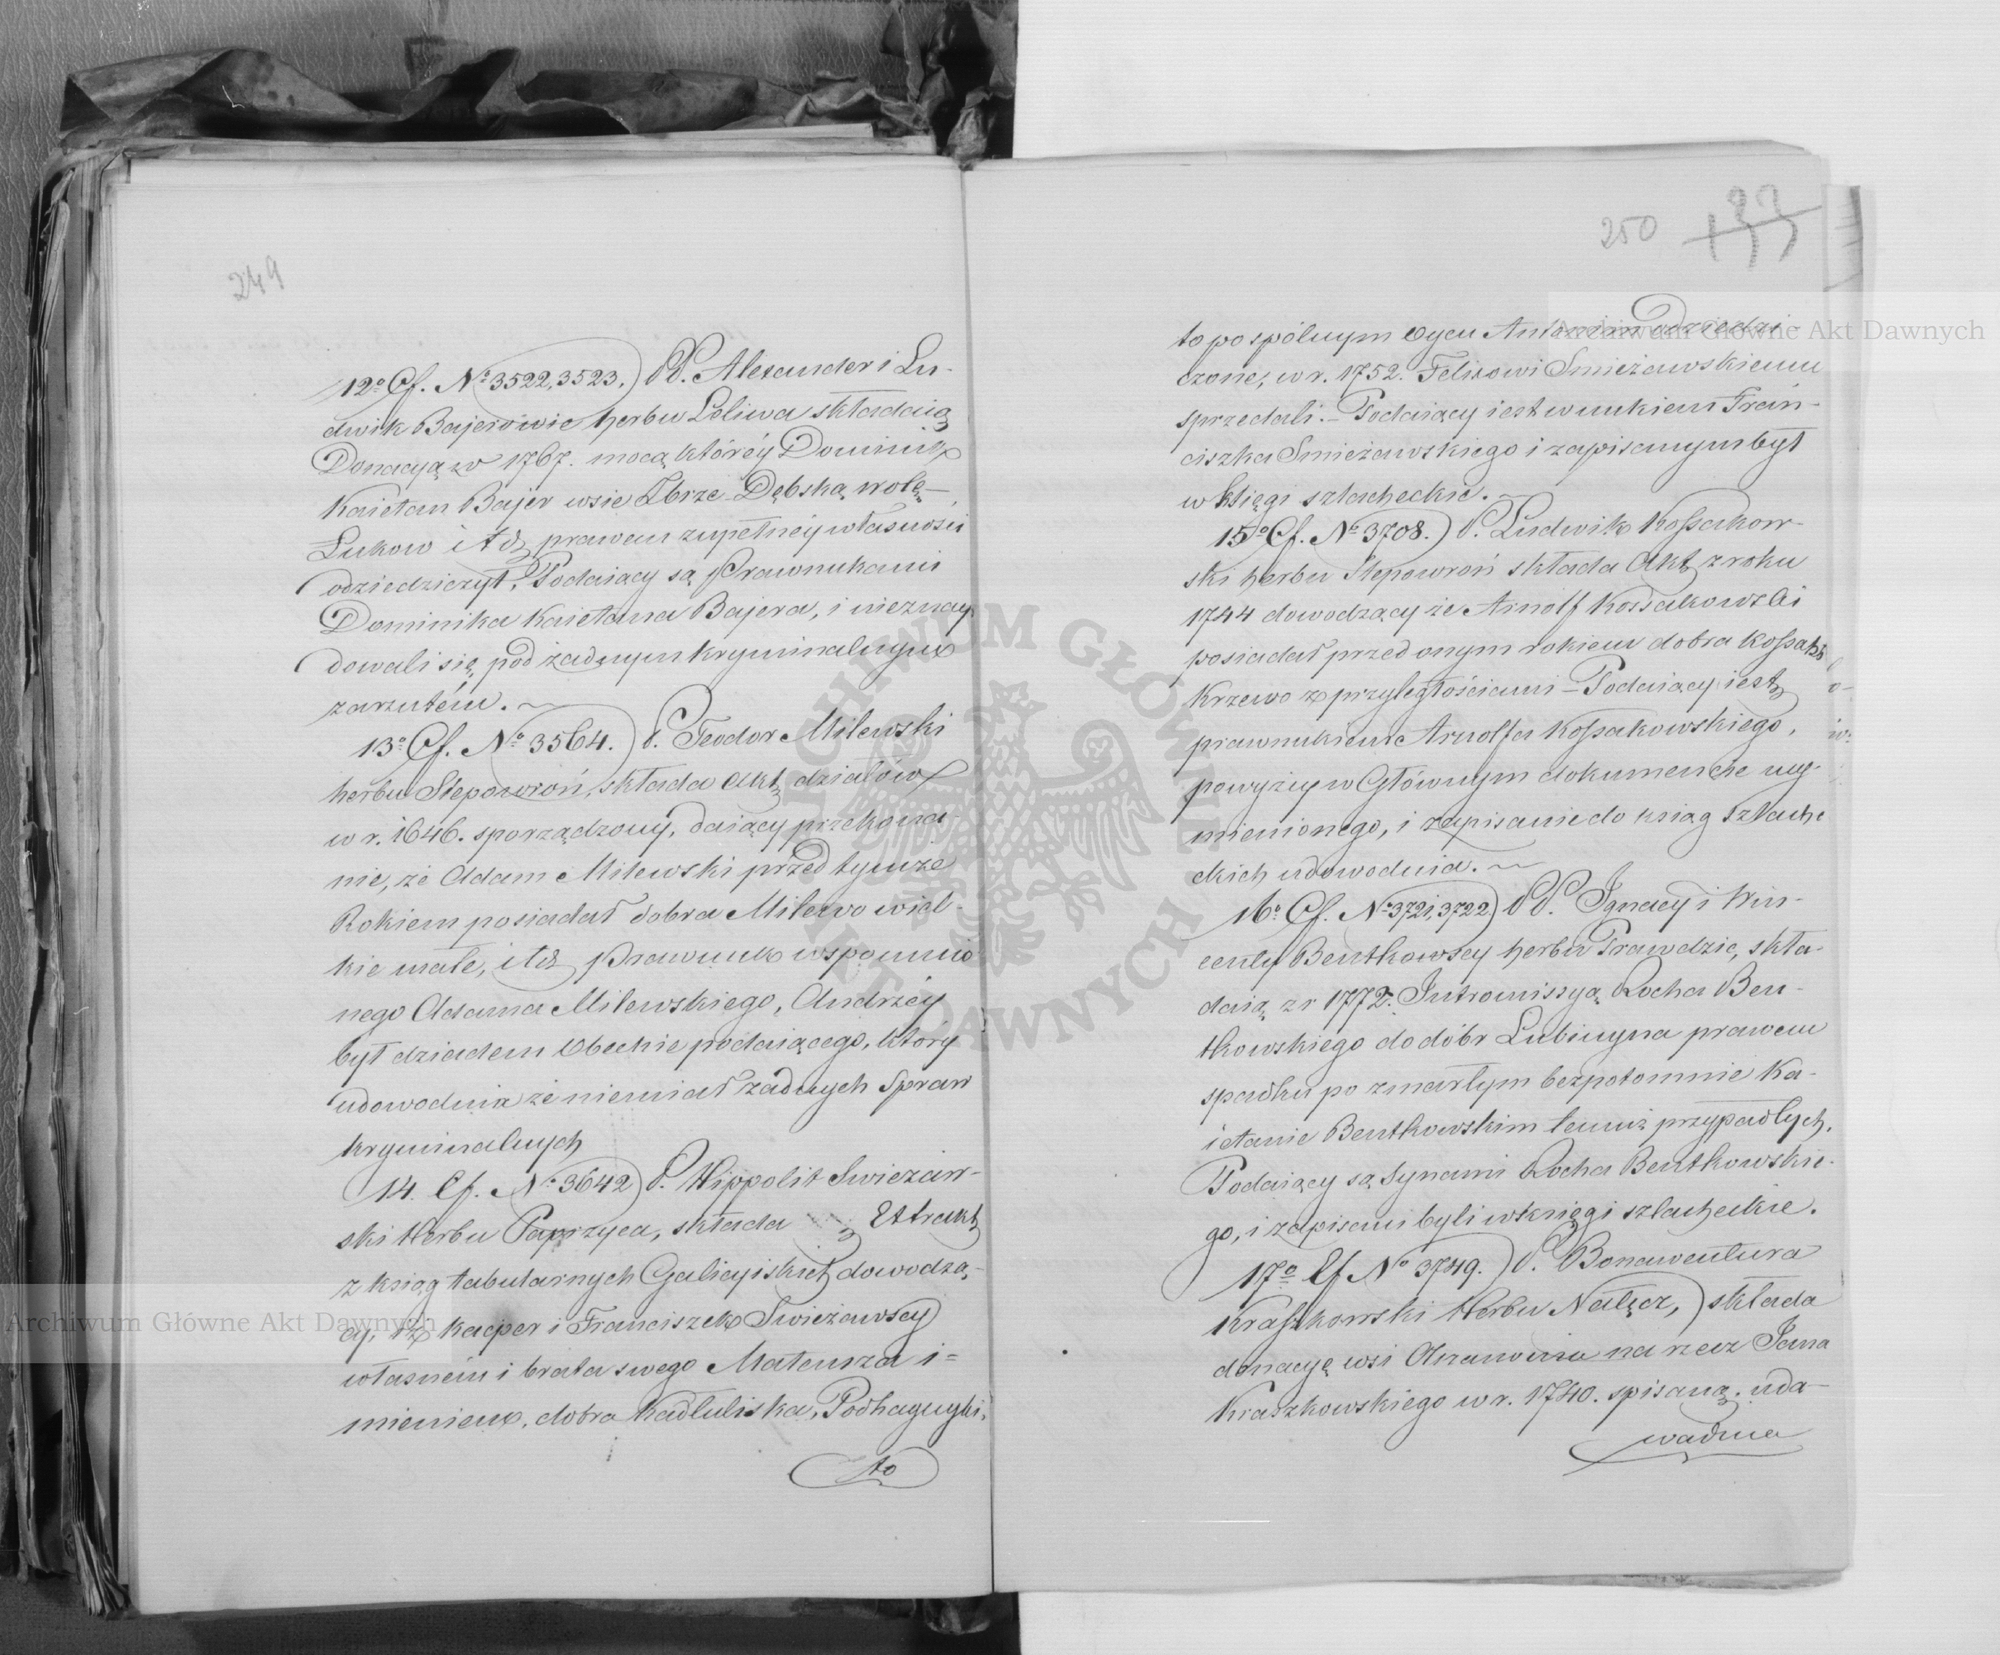 249
12o Cf. No 3522, 3523.) PP. Alexander i Lu-
dwik Bajerowie herbu Leliwa składaią
Donacyą w 1767. mocą któréy Dominik
Kaietan Bajer wsie Dębską wolę
Łukow i td. prawem zupełnéy własności
odziedziczył. Podaiący są Prawnukami
Dominika Kaietana Bajera, i nieznay-
dowali się pod żadnym kryminalnym
zarzutém.
13o Cf. No 3564.) P. Teodor Milewski
herbu Slepowron, składa Akt działów
w r. 1646. sporządzony, daiący przekona-
nie, że Adam Milewski przed tymże
Rokiem posiadał dobra Milewo wiel-
kie małe, itd. Prawnuk wspomnio-
nego Adama Milewskiego, Andrzéy
był dziadem Obecnie podaiącego, który
udowodnia że niemiał żadnych Spraw
kryminalnych
14. Cf. No 3642) P. Hippolit Swieżaw-
ski Herbu Paprzyca, składa Extrakt
z ksiąg tabularnych Galicyiskich dowodzą-
cy, iż Kacper i Franciszek Swieżawscy
własném i brata swego Mateusza i=
mieniem, dobra Kadłuliska,
to
250 133
to po spólnym oycu Antonim odziedzi-
czone, w r. 1752. Felixowi Smieżawskiemu
sprzedali. - Podaiący iest wnukiem Fran-
ciszka Smieżawskiego i zapisanym był
w księgi szlacheckie.
15o Cf. No 3708.) P. Ludwik Kossakow-
ski herbu Slepowron składa Akt z roku
1744 dowodzący że Arnolf Kossakowski
posiadał przed onym rokiem dobra Kossaki
Krzewo z przyległościami - Podaiący iest
prawnukiem Arnolfa Kossakowskiego,
powyżey w Głównym dokumencie wy-
mienionego, i zapisanie do ksiąg Szlache
ckich udowodnia.
16o Cf. No 3721, 3722) PP. Ignacy i Win-
centy Bentkowscy herbu Prawdzic, skła-
daią z r 1772. Intromissyą Rocha Ben-
tkowskiego do dóbr Lubinyna prawem
spadku po zmarłym bezpotomnie Ka-
ietanie Bentkowskim temuż przypadłych.
Podaiący są Synami Rocha Bentkowskie-
go, i zapisani byli w księgi szlacheckie.
17o Cf No 3749.) P. Bonawentura
Kraszkowski Herbu Nałęcz, składa
donacyę wsi na rzecz Jana
Kraszkowskiego w r. 1740. spisaną. uda-
wadnia
Archiwum Główne Akt Dawnych
Archiwum Główne Akt Dawnych
ARCHIWUM GŁÓWNE AKT DAWNYCH